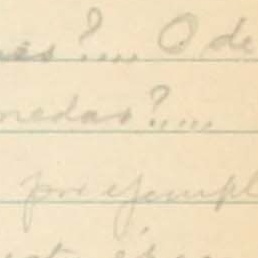 es?.... O de
nedas?.....
por ejempl